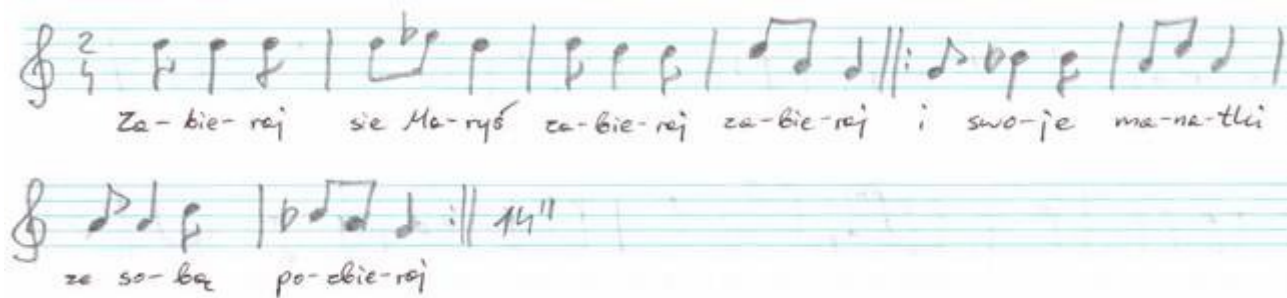 2
4
Za-bie-raj sie Ma-ryś za-bie-raj za-bie-raj i swo-je ma-na-tki
14"
ze so-bą po-zbie-raj